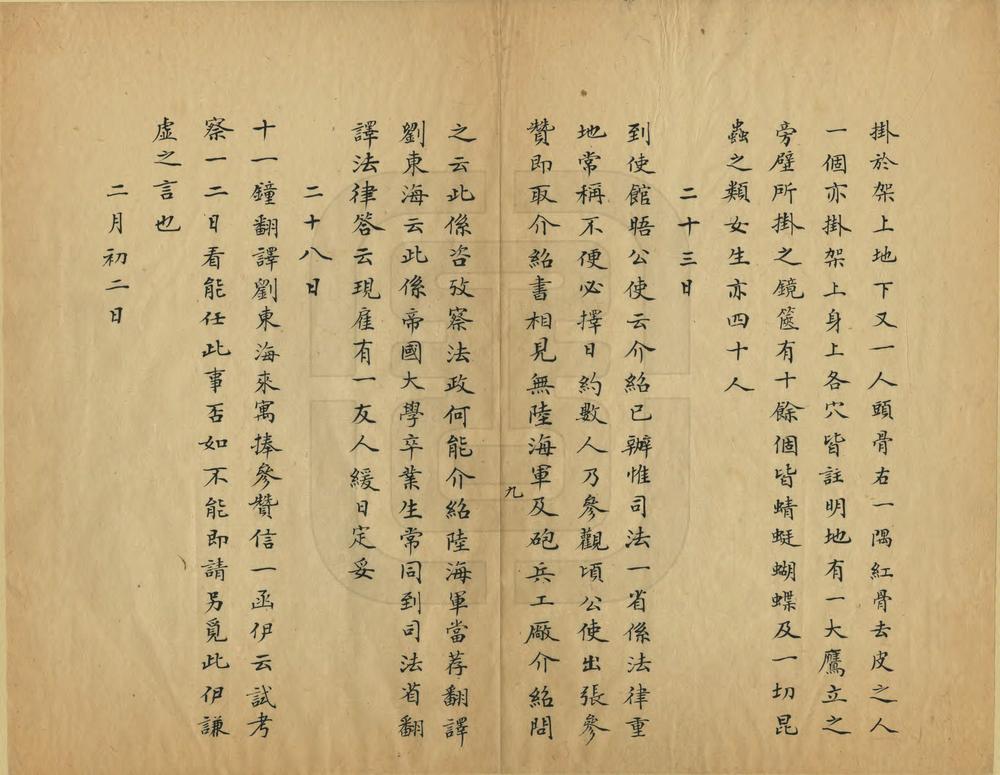 掛於架上地下又一人頭骨右一隅紅骨去皮之人
一個亦掛架上身上各穴皆註明地有一大鷹立之
旁壁所掛之鏡篋有十餘個皆蜻蜓蝴蝶及一切昆
蟲之類女生亦四十人
二十三日
到使館晤公使云介紹已辦惟司法一省係法律重
地常稱不便必擇日約數人乃參觀頃公使出張參
贊即取介紹書相見無陸海軍及砲兵工廠介紹問
九
之云此係咨攷察法政何能介紹陸海軍當荐翻譯
劉東海云此係帝國大學卒業生常同到司法省翻
譯法律答云現雇有一友人緩日定妥
二十八日
十一鐘翻譯劉東海來寓捧參贊信一函伊云試考
察一二日看能任此事否如不能即請另覓此伊謙
虛之言也
二月初二日